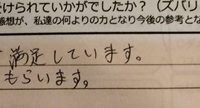 受けられていかがでしたか？（ズバリ
感想が、私達の何よりの力となり今後の参考とな
満足しています。
もらいます。